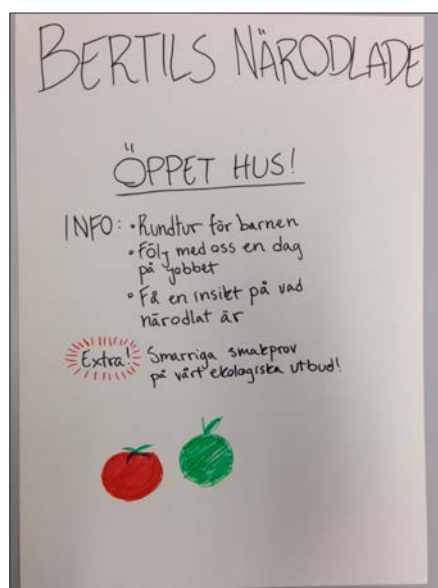 BERTILS NÄRODLADE
ÖPPET HUS!
INFO: • Rundtur för barnen
• Följ med oss en dag
på jobbet
• Få en insikt på vad
närodlat är
Extra! Smarriga smakprov
på vårt ekologiska utbud!